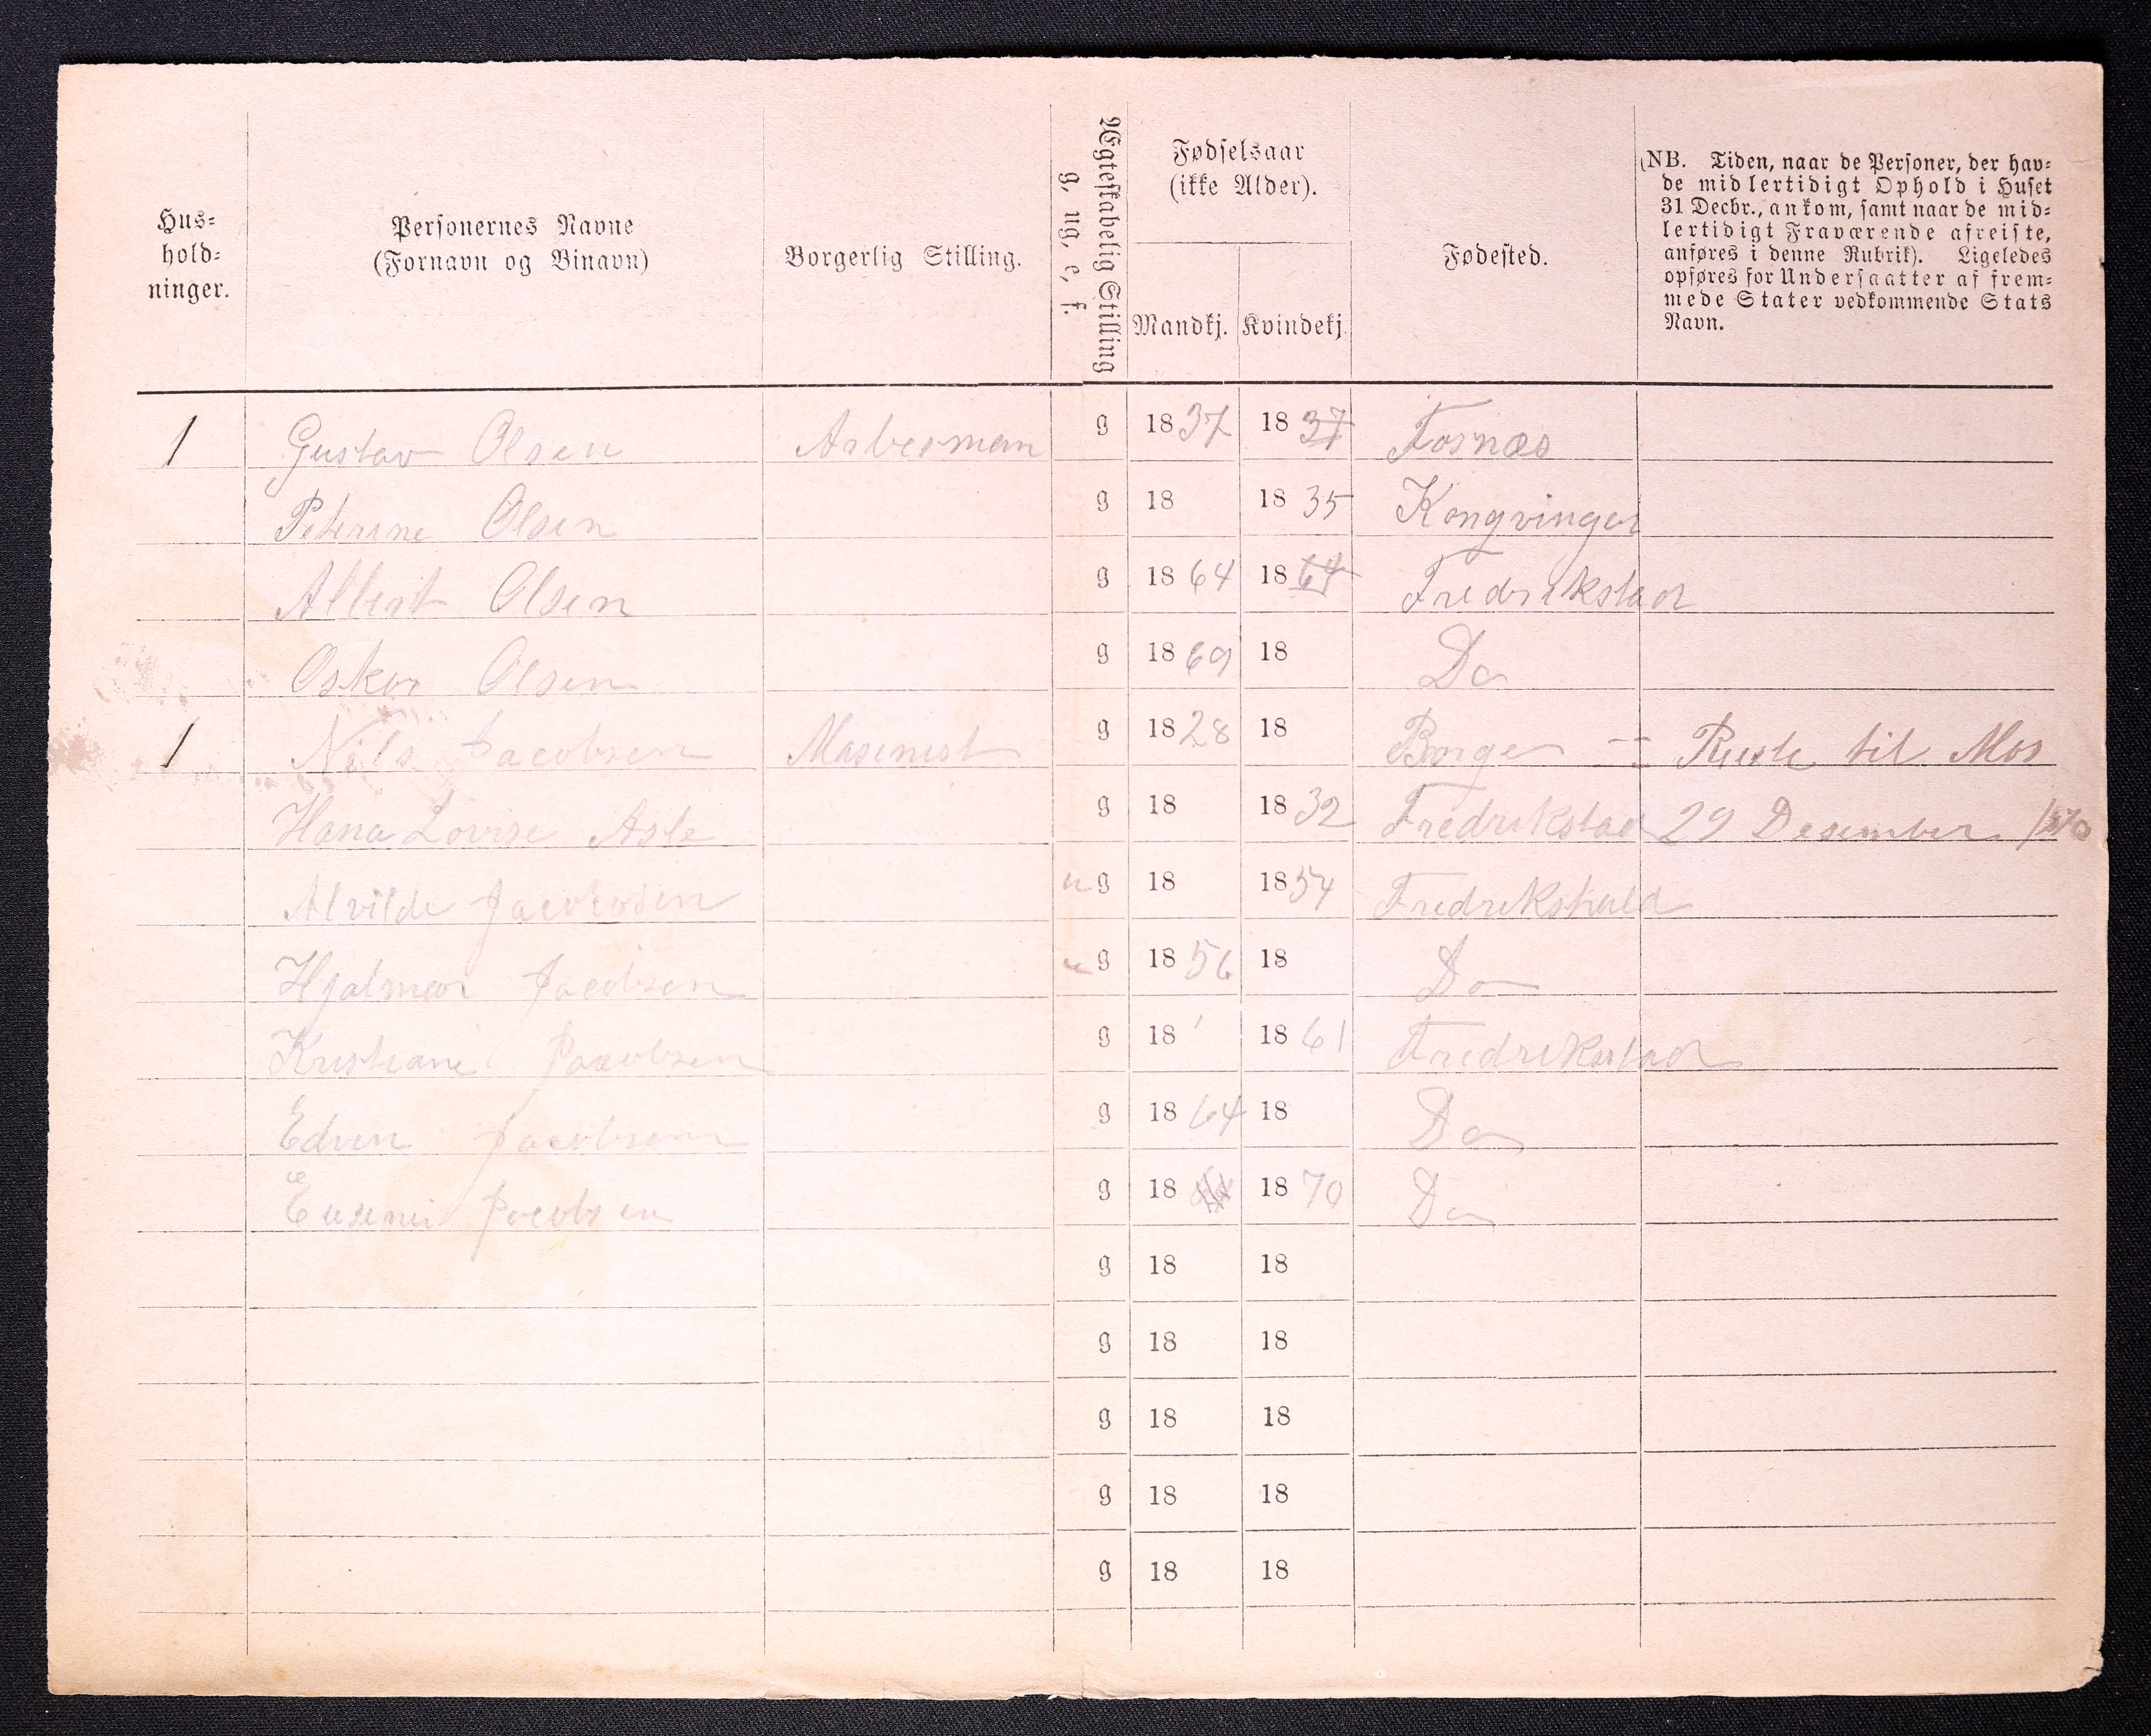 Hus-
hold-
ninger.
Personernes Navne
(Fornavn og Binavn)
Borgerlig Stilling.
Ægteskabelig Stilling
g, ug, e, f.
Fødselsaar
(ikke Alder).
Mandkj. Kvindekj.
Fødested.
(NB. Tiden, naar de Personer, der hav-
de midlertidigt Ophold i Huset
31 Decbr., ankom, samt naar de mid-
lertidigt Fraværende afreiste,
anføres i denne Rubrik). Ligeledes
opføres for Undersaatter af frem-
mede Stater vedkommende Stats
Navn.
1 Gustav Olsen Arbesman g 1837 1837 Fosnæs
Olsen g 18 1835 Kongvinger
Albert Olsen g 1864 1864 Fredrikstad
Oskar Olsen g 1869 18 Do
1 Nils Jacobsen Masinist g 1828 18 Borge Reiste til Mos
Hana Lovise Asle g 18 1832 Fredrikstad 29 Desember
Alvilde Jacobsen ug 18 1854 Fredrikshald
Hjalmar Jacobsen ug 1856 18 Do
Kristiane Jacobsen g 18 1861 Fredrikstad
Edvin Jacobsen g 1864 18 Do
Jacobsen g 18 1870 Do
g 18 18
g 18 18
g 18 18
g 18 18
g 18 18